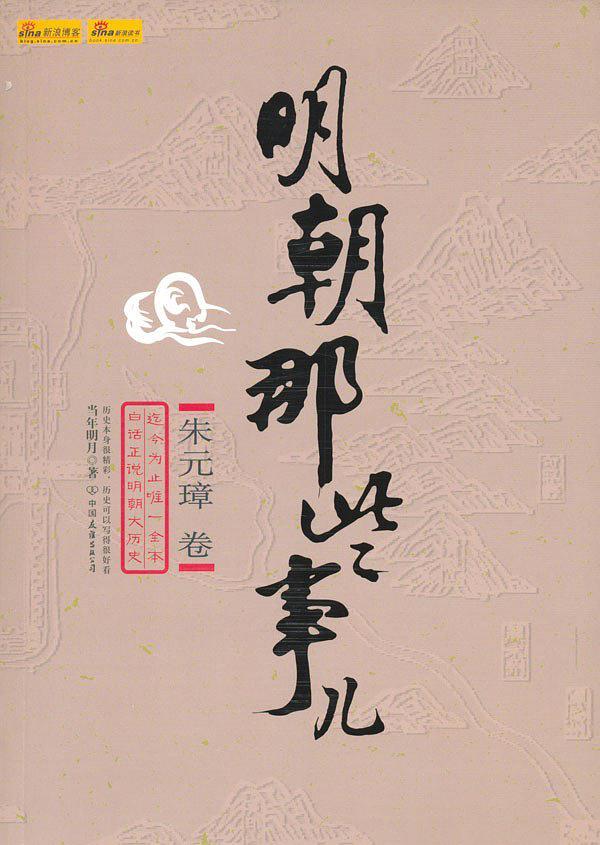 sina新浪博客
blog.sina.com.cn
sina新浪读书
book.sina.com.cn
明朝那些事儿
朱元璋 卷
迄今为止唯一全本
白话正说明朝大历史
历史本身很精彩,历史可以写得很好看
当年明月◎著
中国友谊出版公司